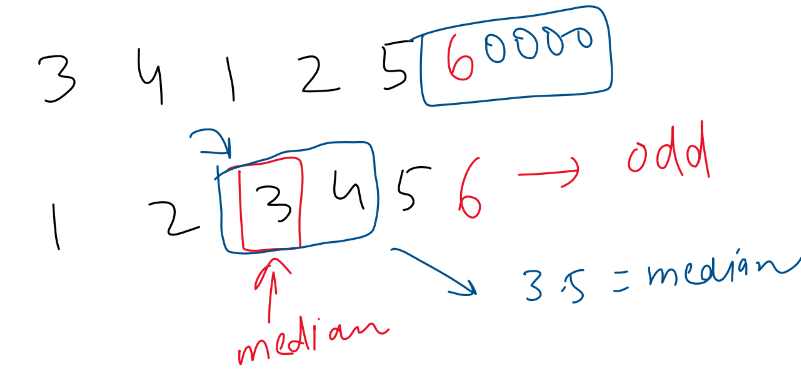 3 4 1 2 5 60000
1 2 3 4 5 6 → odd
3.5 = median
median